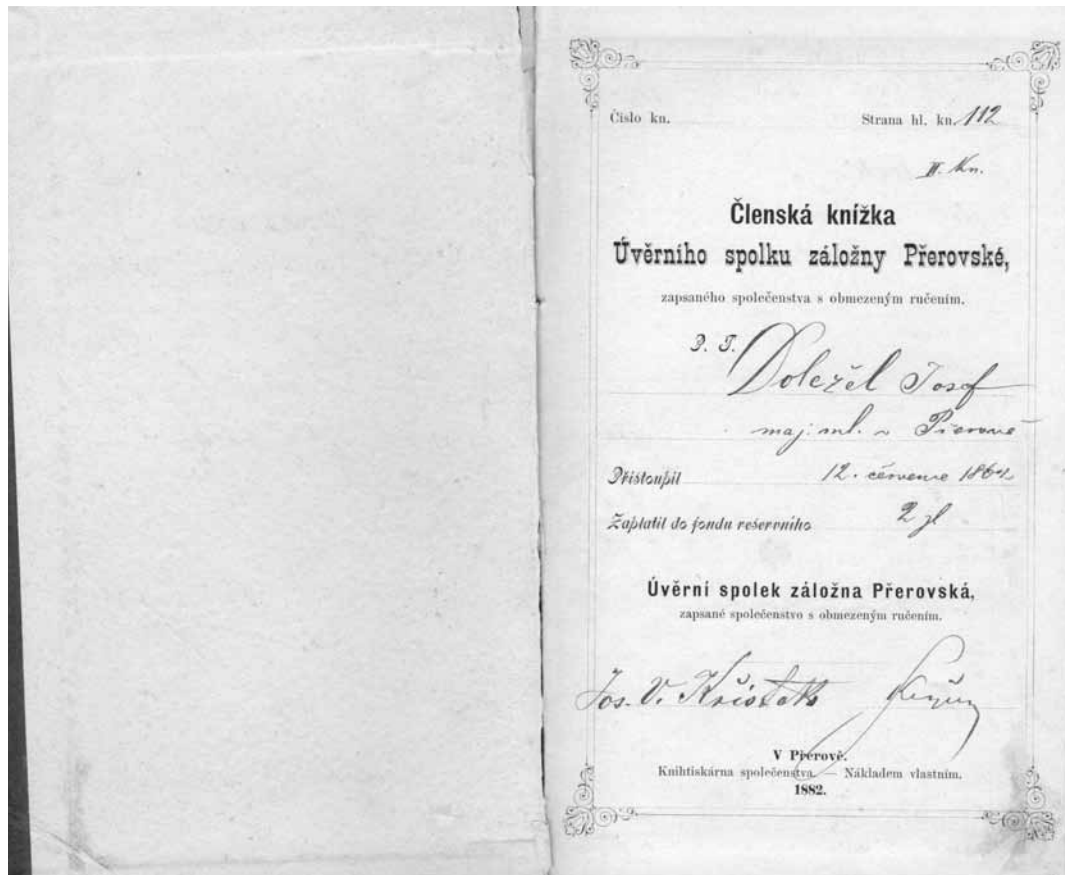 Číslo kn. Strana hl. kn. 112
II. Kn.
Členská knížka
Úvěrního spolku záložny Přerovské,
zapsaného společenstva s obmezeným ručením.
P. T.
Doležel Josef
maj. ml. v Přerově
Přistoupil 12. července 1864
Zaplatil do fondu reservního 2 zl
Úvěrní spolek záložna Přerovská,
zapsané společenstvo s obmezeným ručením.
Jos. V. Křístek
V Přerově.
Knihtiskárna společenstva. — Nákladem vlastním.
1882.